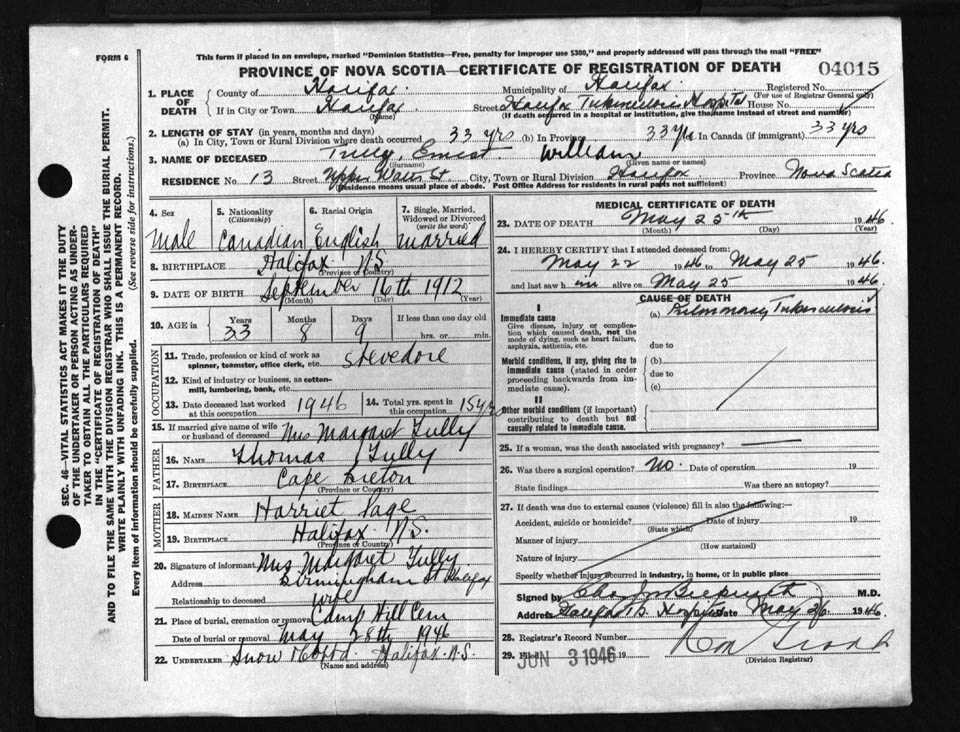 FORM 6
This form if placed in an envelope, marked "Dominion Statistics—Free, penalty for improper use $300," and properly addressed will pass through the mail "FREE"
PROVINCE OF NOVA SCOTIA—CERTIFICATE OF REGISTRATION OF DEATH 04015
1. PLACE OF DEATH
County of Halifax Municipality of Halifax Registered No.
(For use of Registrar General only)
If in City or Town Halifax Street Halifax Tuberculosis Hospital House No.
(Name) (If death occurred in a hospital or institution, give the name instead of street and number)
2. LENGTH OF STAY (in years, months and days)
(a) In City, Town or Rural Division where death occurred 33 yrs (b) In Province 33 yrs In Canada (if immigrant) 33 yrs
3. NAME OF DECEASED Tully, Ernest William
(Surname) (Given name or names)
RESIDENCE No. 13 Street Upper Water St City, Town or Rural Division Halifax Province Nova Scotia
(Residence means usual place of abode. Post Office Address for residents in rural parts not sufficient)
4. Sex Male
5. Nationality (Citizenship) Canadian
6. Racial Origin English
7. Single, Married, Widowed or Divorced (write the word) Married
8. BIRTHPLACE Halifax N.S.
(Province or Country)
9. DATE OF BIRTH September 16th 1912
(Month) (Day) (Year)
10. AGE in Years 33 Months 8 Days 9 If less than one day old hrs. or min.
OCCUPATION
11. Trade, profession or kind of work as spinner, teamster, office clerk, etc. Stevedore
12. Kind of industry or business, as cotton-mill, lumbering, bank, etc.
13. Date deceased last worked at this occupation 1946
14. Total yrs. spent in this occupation 15 yrs
15. If married give name of wife or husband of deceased Mrs Margaret Tully
FATHER
16. NAME Thomas Tully
17. BIRTHPLACE Cape Breton
(Province or Country)
MOTHER
18. MAIDEN NAME Harriet Page
19. BIRTHPLACE Halifax N.S.
(Province or Country)
20. Signature of informant Mrs Margaret Tully
Address Birmingham St Halifax
Relationship to deceased Wife
21. Place of burial, cremation or removal Camp Hill Cem
Date of burial or removal May 28th 1946
22. UNDERTAKER Snow & Co Ltd. Halifax N.S.
(Name and address)
MEDICAL CERTIFICATE OF DEATH
23. DATE OF DEATH May 25th 1946
(Month) (Day) (Year)
24. I HEREBY CERTIFY that I attended deceased from:
May 22 1946 to May 25 1946
and last saw him alive on May 25 1946
CAUSE OF DEATH
I
Immediate cause
Give disease, injury or complication which caused death, not the mode of dying, such as heart failure, asphyxia, asthenia, etc.
(a) Pulmonary Tuberculosis
due to
Morbid conditions, if any, giving rise to immediate cause (stated in order proceeding backwards from immediate cause).
(b)
due to
(c)
II
Other morbid conditions (if important) contributing to death but not causally related to immediate cause.
25. If a woman, was the death associated with pregnancy?
26. Was there a surgical operation? No. Date of operation 19
State findings Was there an autopsy?
27. If death was due to external causes (violence) fill in also the following:—
Accident, suicide or homicide? Date of injury 19
(State which)
Manner of injury
(How sustained)
Nature of injury
Specify whether injury occurred in industry, in home, or in public place
Signed by M.D.
Address Halifax T.B. Hospital Date May 26 1946
28. Registrar's Record Number
29. Filed JUN 3 1946 19
(Division Registrar)
SEC. 46—VITAL STATISTICS ACT MAKES IT THE DUTY
OF THE UNDERTAKER OR PERSON ACTING AS UNDER-
TAKER TO OBTAIN ALL THE PARTICULARS REQUIRED
IN THE "CERTIFICATE OF REGISTRATION OF DEATH"
AND TO FILE THE SAME WITH THE DIVISION REGISTRAR WHO SHALL ISSUE THE BURIAL PERMIT.
WRITE PLAINLY WITH UNFADING INK. THIS IS A PERMANENT RECORD.
Every item of information should be carefully supplied. (See reverse side for instructions.)